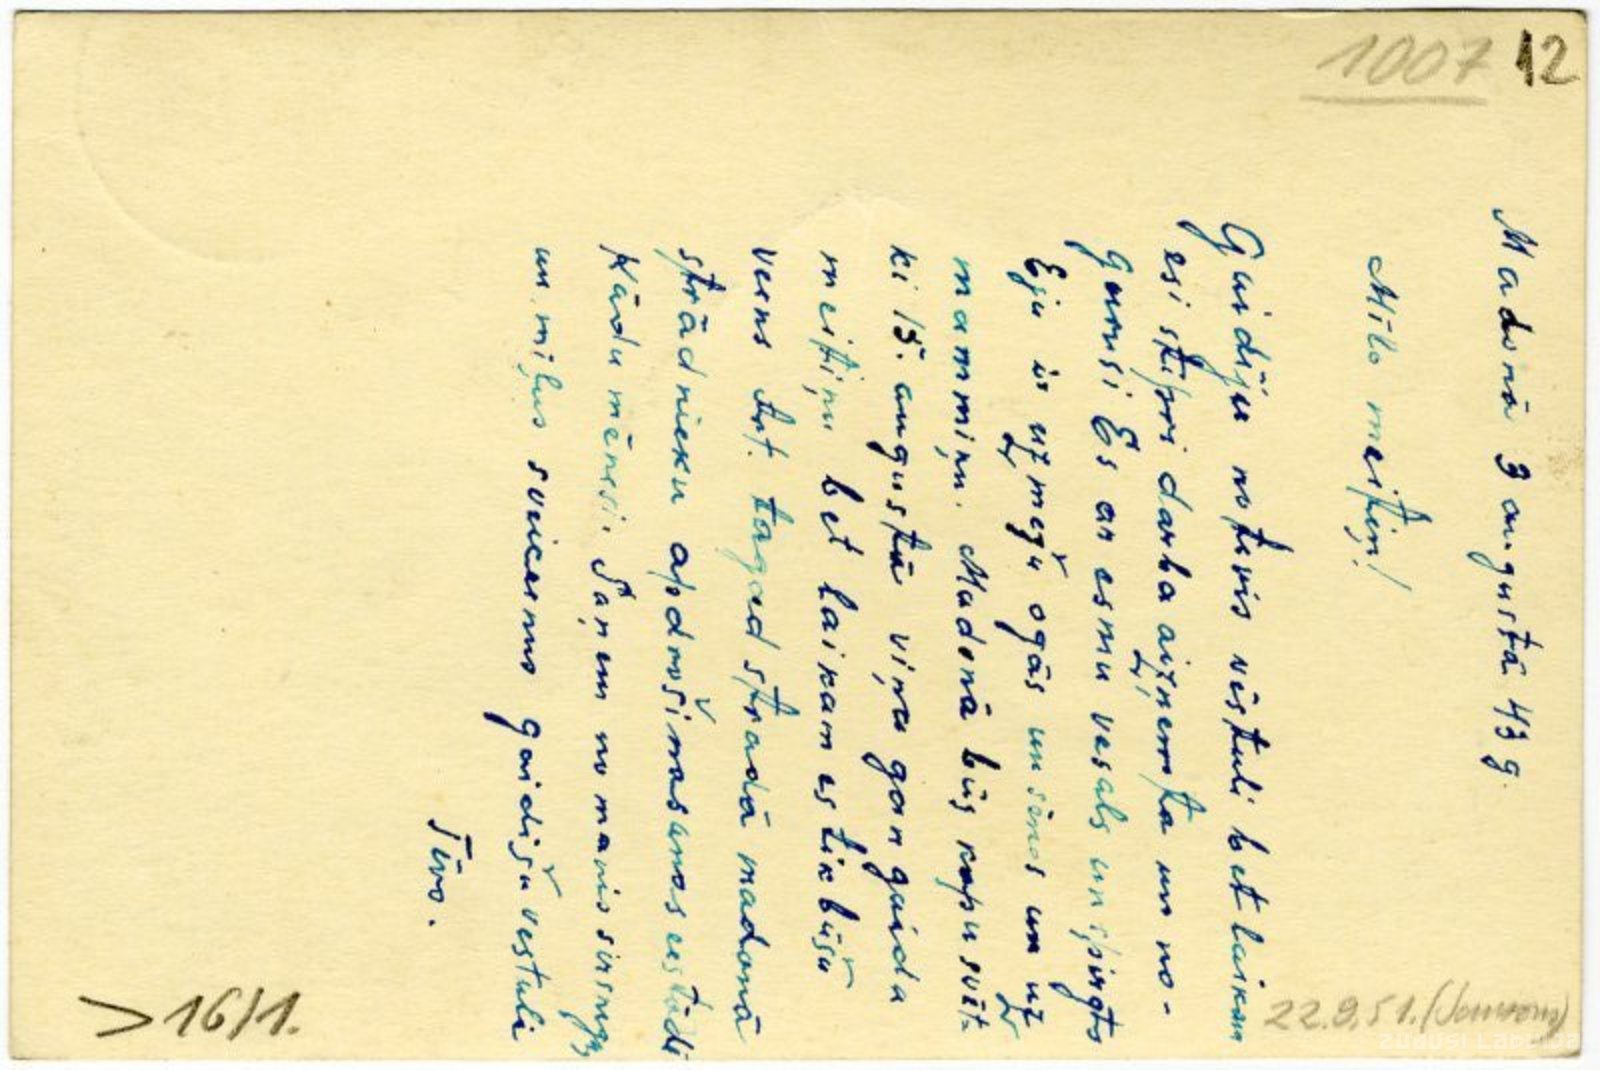 1007 12
Madonā 3 augustā 43 g.
Mīļo meitiņ!
Gaidīju no tevis vēstuli bet laikam
esi stipri darba aizņemta un no-
gurusi Es ar esmu vesals un spirgts
Eju ir uz mežu ogās un sēnēs un uz
mammiņu. Madonā būs kapu svēt-
ki 15. augustā viņa gan gaida
meitiņu bet laikam es tik būšu
viens Art. tagad stradā madonā
strādnieku apdrošināšanas iestādē
Kādu mēnesi. Saņem no manis sirsnīgu
un mīļus sveicienus gaidišu vestuli
Tēvs.
>16/1.
22.9.51.